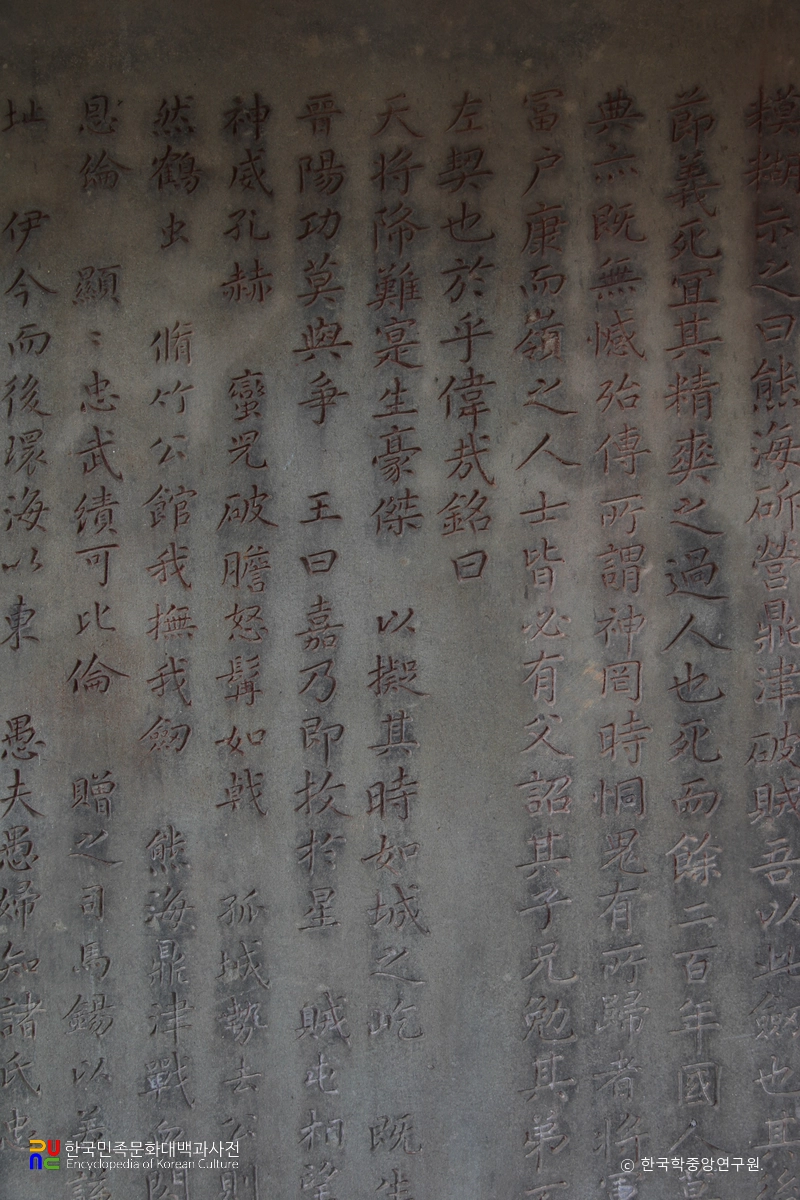 模糊示之曰熊海斫營鼎津破賊吾以此劒也其後
節義死冝其精爽之過人也死而餘二百年國人
典亦既無憾殆傳所謂神罔時恫晁有所歸者將
冨户康而嶺之人士皆必有父詔其子兄勉其弟
左契也於乎偉哉銘曰
天將降難寔生豪傑 以擬其時如城之屹 既生
晋陽功莫與爭 王曰嘉乃即拔於星 賊屯相望
神威孔赫 蠻兇破膽怒髯如戟 孤城勢去公則
然鶴虫 脩竹公館我撫我劒 熊海鼎津戰
恩倫 顯〻忠武績可比倫 贈之司馬錫以美諡
址 伊今而後環海以東 愚夫愚婦知諸氏忠
한국민족문화대백과사전
Encyclopedia of Korean Culture
© 한국학중앙연구원